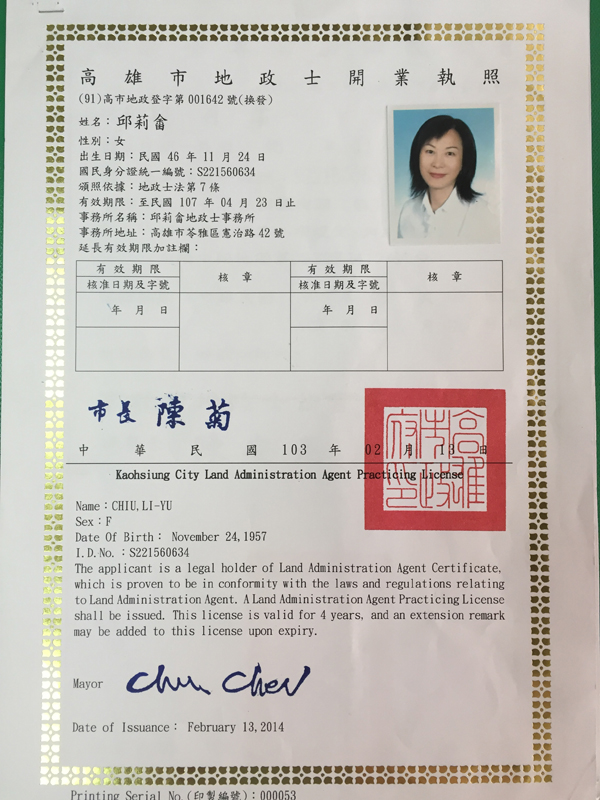 高雄市地政士開業執照
(91)高市地政登字第001642號(換發)
姓名：邱莉畬
性別：女
出生日期：民國 46 年 11 月 24 日
國民身分證統一編號：S221560634
頒照依據：地政士法第7條
有效期限：至民國 107 年 04 月 23 日止
事務所名稱：邱莉畬地政士事務所
事務所地址：高雄市苓雅區憲治路42號
延長有效期限加註欄：
有效期限 核章 有效期限 核章
核准日期及字號 核准日期及字號
年 月 日 年 月 日
市長 陳菊
高雄市政府印
中華民國 103 年 02 月 13 日
Kaohsiung City Land Administration Agent Practicing License
Name：CHIU,LI-YU
Sex：F
Date Of Birth： November 24,1957
I.D.No.：S221560634
The applicant is a legal holder of Land Administration Agent Certificate,
which is proven to be in conformity with the laws and regulations relating
to Land Administration Agent. A Land Administration Agent Practicing License
shall be issued. This license is valid for 4 years, and an extension remark
may be added to this license upon expiry.
Mayor Chu Chen
Date of Issuance： February 13,2014
Printing Serial No.(印製編號)：000053